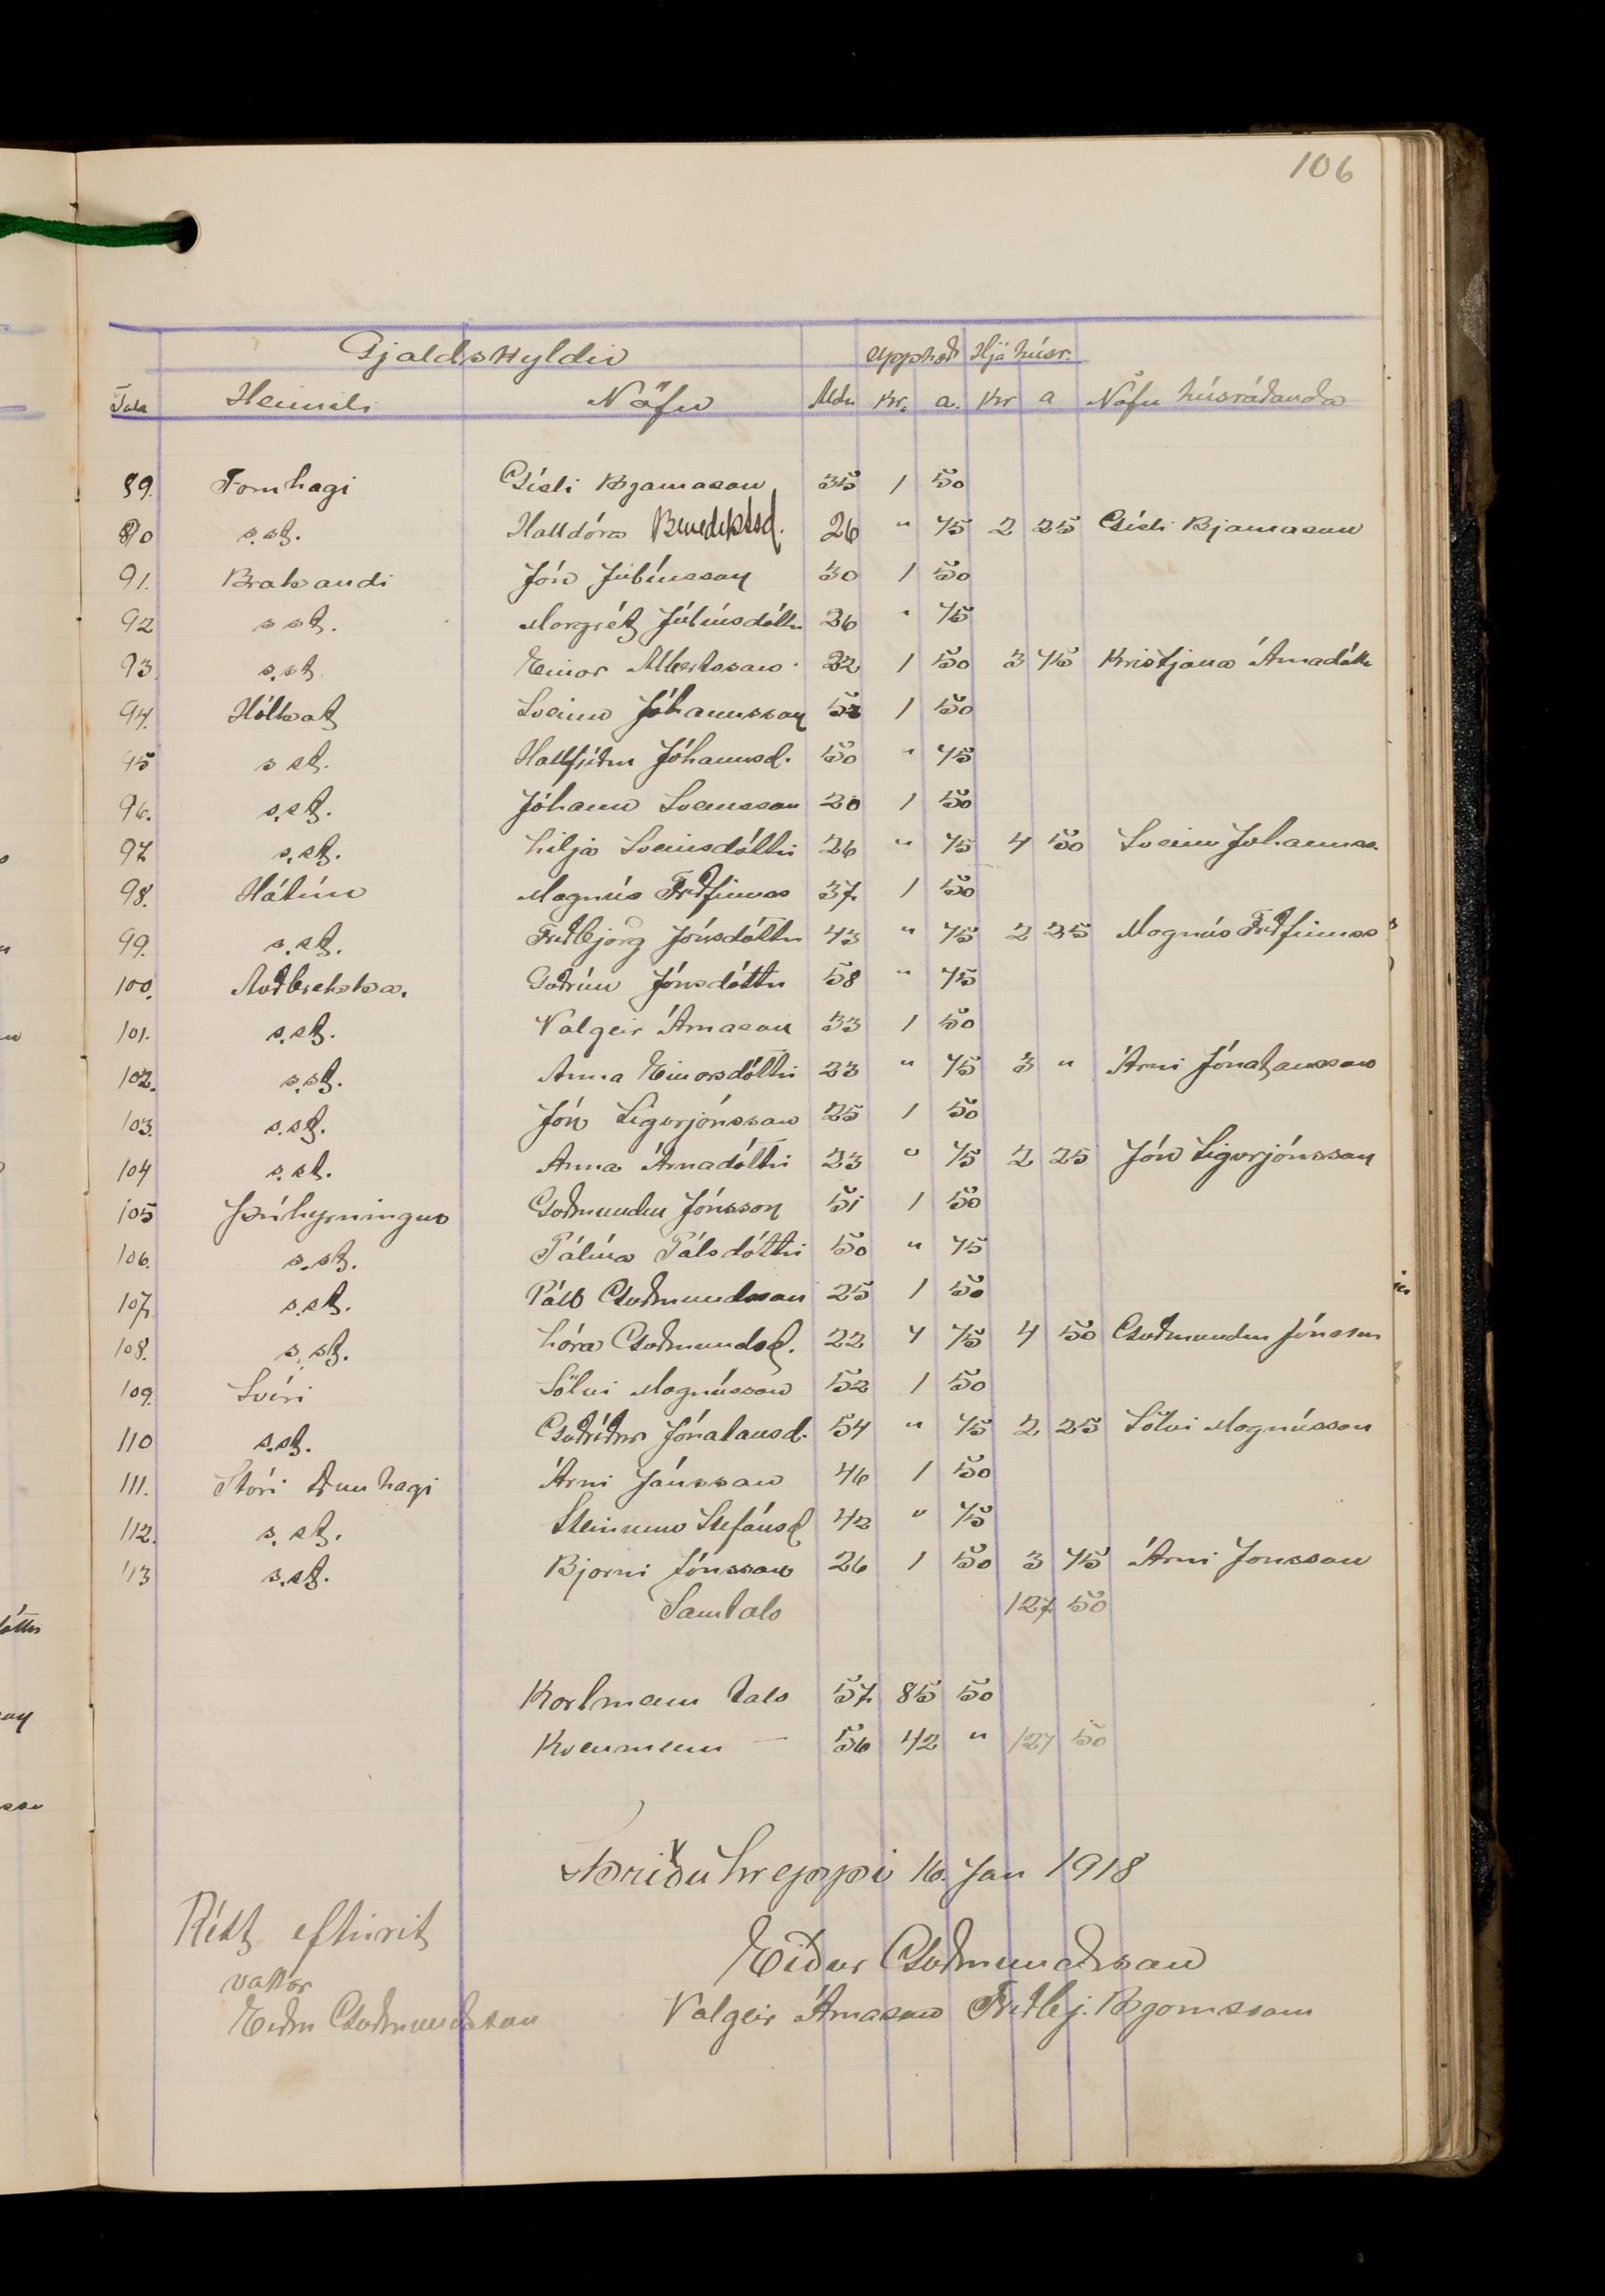 106
Gjaldskyldir Upphæð Hjá húsr.
Tala Heimili Nöfn Aldu Kr. a. Kr a Nöfn húsráðanda
89. Fornhagi Gísli Bjarnason 35 1 50
90 s.st. Halldóra Benediktsd. 26 " 75 2 25 Gísli Bjarnason
91. Brakandi Jón Júlíusson 30 1 50
92 s st. Margrét Júlíusdóttir 26 " 75
93 s.st. Einar Albertsson 22 1 50 3 75 Kristjana Árnadóttir
94. Hólkot Sveinn Jóhannsson 52 1 50
95 s st. Hallfríður Jóhannsd. 50 " 75
96. s.st. Jóhann Sveinsson 20 1 50
97 s.st. Lilja Sveinsdóttir 26 " 75 4 50 Sveinn Jóhannss.
98. Hátún Magnús Friðfinnss 37 1 50
99. s.st. Friðbjörg Jónsdóttir 43 " 75 2 25 Magnús Friðfinnss
100. Auðbrekka. Guðrún Jónsdóttir 58 " 75
101. s.st. Valgeir Árnason 33 1 50
102. s.st. Anna Einarsdóttir 23 " 75 3 " Árni Jónatansson
103. s.st. Jón Sigurjónsson 25 1 50
104 s.st. Anna Árnadóttir 23 " 75 2 25 Jón Sigurjónsson
105 Þríhyrningur Guðmundur Jónsson 51 1 50
106. s.st. Pálína Pálsdóttir 50 " 75
107. s.st. Páll Guðmundsson 25 1 50
108. s.st. Þóra Guðmundsd. 22 " 75 4 50 Guðmundur Jónsson
109. Svíri Sölvi Magnússon 52 1 50
110 s.st. Guðríður Jónatansd. 54 " 75 2 25 Sölvi Magnússon
111. Stóri Dunhagi Árni Jónsson 46 1 50
112. s.st. Steinunn Stefánsd 42 " 75
113 s.st. Bjarni Jónsson 26 1 50 3 75 Árni Jónsson
Samtals 127 50
Karlmenn tals 57 85 50
Kvenmenn — 56 42 " 127 50
Skriðuhreppi 16. Jan 1918
Rétt eftirrit
Eiður Guðmundsson
vottar
Valgeir Árnason Friðbj. Bjornsson
Eiður Guðmundsson